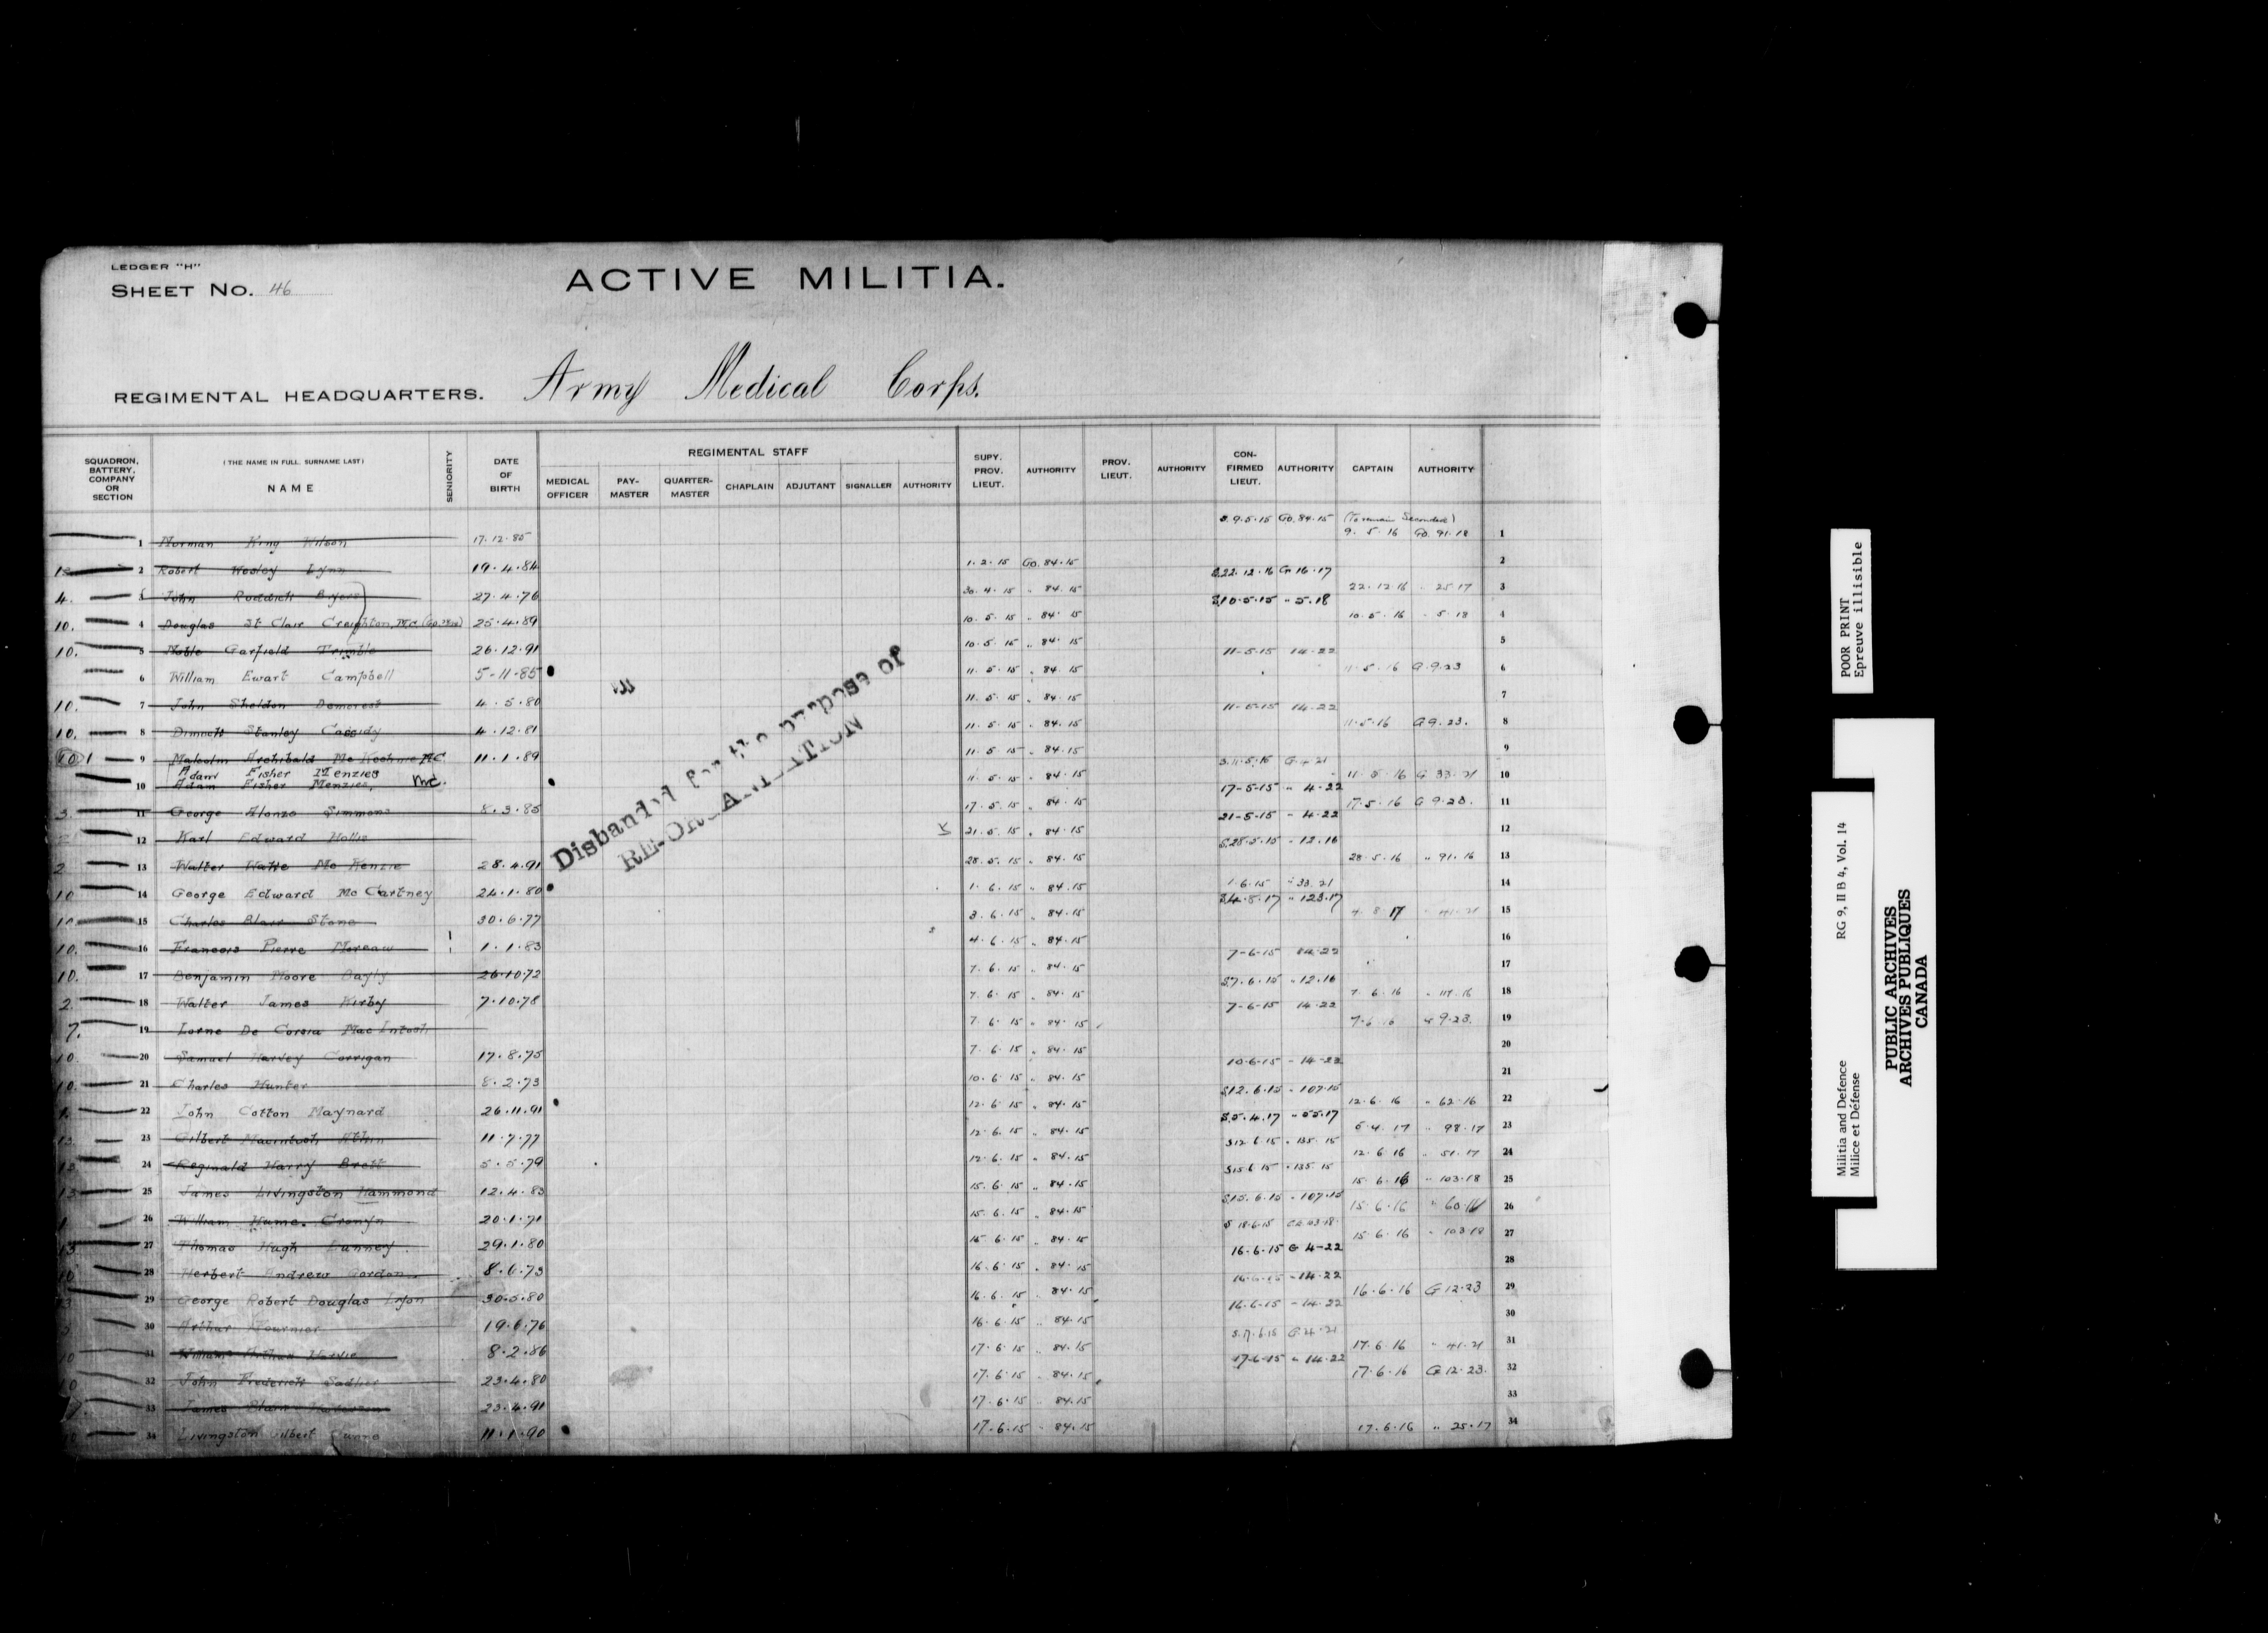 LEDGER "H"
SHEET No. 46
ACTIVE MILITIA.
REGIMENTAL HEADQUARTERS. Army Medical Corps.
SQUADRON, BATTERY, COMPANY OR SECTION
(THE NAME IN FULL. SURNAME LAST) NAME
SENIORITY
DATE OF BIRTH
REGIMENTAL STAFF
MEDICAL OFFICER PAY-MASTER QUARTER-MASTER CHAPLAIN ADJUTANT SIGNALLER AUTHORITY
SUPY. PROV. LIEUT. AUTHORITY PROV. LIEUT. AUTHORITY CON-FIRMED LIEUT. AUTHORITY CAPTAIN AUTHORITY
S.9.5.15 GO.84.15 (To remain Seconded)
1 Norman King Wilson 17.12.85 9.5.16 GO.91.18 1
2 Robert Wesley Lynn 19.4.84 1.2.15 GO.84.15 2
S.22.12.16 G 16.17
4. 3 John Roddick Byers 27.4.76 30.4.15 " 84.15 22.12.16 " 25.17 3
S.10.5.15 " 5.18
10. 4 Douglas St Clair Creighton, M.C. 25.4.89 10.5.15 " 84.15 10.5.16 " 5.18 4
10. 5 Noble Garfield Trimble 26.12.91 10.5.15 " 84.15 5
11-5-15 14-22
6 William Ewart Campbell 5-11-85 11.5.15 " 84.15 11.5.16 G.9.23 6
10. 7 John Sheldon Demorest 4.5.80 11.5.15 " 84.15 7
11-5-15 14-22
10. 8 Dimock Stanley Cassidy 4.12.81 11.5.15 " 84.15 11.5.16 G 9.23. 8
10 1 9 Malcolm Archibald MC 11.1.89 11.5.15 " 84.15 9
Adam Fisher Menzies
10 Adam Fisher Menzies, MC. 11.5.15 " 84.15 11.5.16 G 33.21 10
17-5-15 " 4-22
3. 11 George Alonzo Simmons 8.3.85 17.5.15 " 84.15 17.5.16 G 9.23. 11
21-5-15 - 4-22
12 Karl Edward Hollis 21.5.15 " 84.15 12
S.28.5.15 - 12.16
2 13 Walter Watts McKenzie 28.4.91 28.5.15 " 84.15 28.5.16 " 91.16 13
10 14 George Edward McCartney 24.1.80 1.6.15 " 84.15 1.6.15 " 33.21 14
S.4.8.17 " 123.17
10 15 Charles Blair Stone 30.6.77 3.6.15 " 84.15 4.8.17 " 41.21 15
10. 16 Francois Pierre Moreau 1.1.83 4.6.15 " 84.15 16
7-6-15
10. 17 Benjamin Moore Bayly 26.10.72 7.6.15 " 84.15 17
S.7.6.15 " 12.16
2. 18 Walter James Kirby 7.10.78 7.6.15 " 84.15 7.6.16 18
7-6-15 14-22
7. 19 Lorne De Corsia MacIntosh 7.6.15 " 84.15 7.6.16 9.23. 19
10. 20 Samuel Harvey Corrigan 17.8.75 7.6.15 " 84.15 20
10-6-15 - 14-22
10. 21 Charles Hunter 8.2.73 10.6.15 " 84.15 21
S.12.6.15 - 107.15
22 John Cotton Maynard 26.11.91 12.6.15 " 84.15 12.6.16 " 62.16 22
S.5.4.17 " 55.17
23 Gilbert Macintosh 11.7.77 12.6.15 " 84.15 5.4.17 " 98.17 23
S.12.6.15 " 135.15
24 Reginald Harry Brett 5.5.79 12.6.15 " 84.15 12.6.16 " 51.17 24
S.15.6.15 " 135.15
13 25 James Livingston Hammond 12.4.83 15.6.15 " 84.15 15.6.16 " 103.18 25
S.15.6.15 - 107.15
26 William Hume Cronyn 20.1.91 15.6.15 " 84.15 15.6.16 " 60.16 26
13 27 Thomas Hugh Lunney 29.1.80 15.6.15 " 84.15 15.6.16 " 103.18 27
16.6.15 G 4-22
10 28 Herbert Andrew Gordon 8.6.73 16.6.15 " 84.15 28
16.6.15 - 14.22
29 George Robert Douglas Lyon 30.5.80 16.6.15 " 84.15 16.6.16 G 12.23 29
16.6.15 - 14.22
30 Arthur Fournier 19.6.76 16.6.15 " 84.15 30
10 31 William Harvie 8.2.86 17.6.15 " 84.15 17.6.16 " 41.21 31
17-6-15 " 14.22
10 32 John Frederick Sadlier 23.4.80 17.6.15 " 84.15 17.6.16 G 12.23. 32
33 James 23.4.91 17.6.15 " 84.15 33
34 Livingston Gilbert 11.1.90 17.6.15 " 84.15 17.6.16 " 25.17 34
Disbanded for the purpose of
RE-ORGANIZATION
POOR PRINT
Epreuve illisible
RG 9, II B 4, Vol. 14
Militia and Defence
Milice et Défense
PUBLIC ARCHIVES
ARCHIVES PUBLIQUES
CANADA